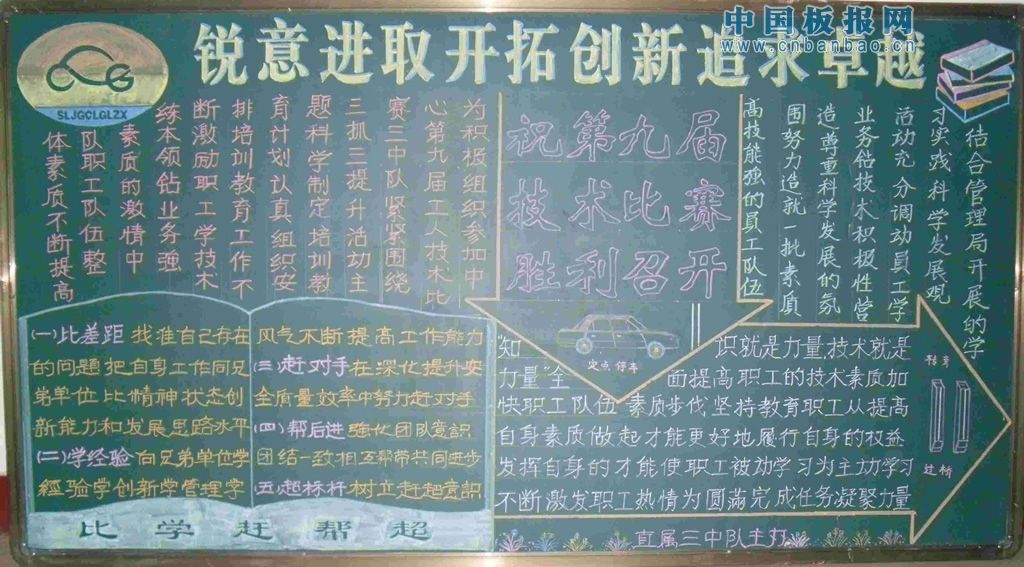 中国板报网
www.cnbanbao.cn
锐意进取开拓创新追求卓越
SLJGCLGLZX
结合管理局开展的学
习实践科学发展观
活动充分调动员工学
业务钻技术积极性营
造尊重科学发展的氛
围努力造就一批素质
高技能强的員工队伍
祝第九届
技术比赛
胜利召开
为积极组织参加中
心第九届工人技术比
赛三中队紧紧围绕
三抓三提升活动主
题科学制定培训教
育计划认真组织安
排培训教育工作不
断激励职工学技术
练本领钻业务强
素质的激情中
队职工队伍整
体素质不断提高
(一)比差距 找准自己存在
的问题把自身工作同兄
弟单位比精神状态创
新能力和发展思路水平
(二)学经验 向兄弟单位学
經验学创新学管理学
风气不断提高工作能力
(三)赶对手在深化提升安
全质量效率中努力赶对手
(四)帮后进 強化团队意識
团结一致相互帮带共同进步
(五)超标杆 树立赶超意識
比学赶帮超
定点停车
“知识就是力量,技术就是
力量”全面提高职工的技术素质加
快职工队伍素质步伐坚持教育职工从提高
自身素质做起才能更好地履行自身的权益
发挥自身的才能使职工被动学习为主动学习
不断激发职工热情为圆滿完成任务凝聚力量
移库
过桥
直属三中队主办